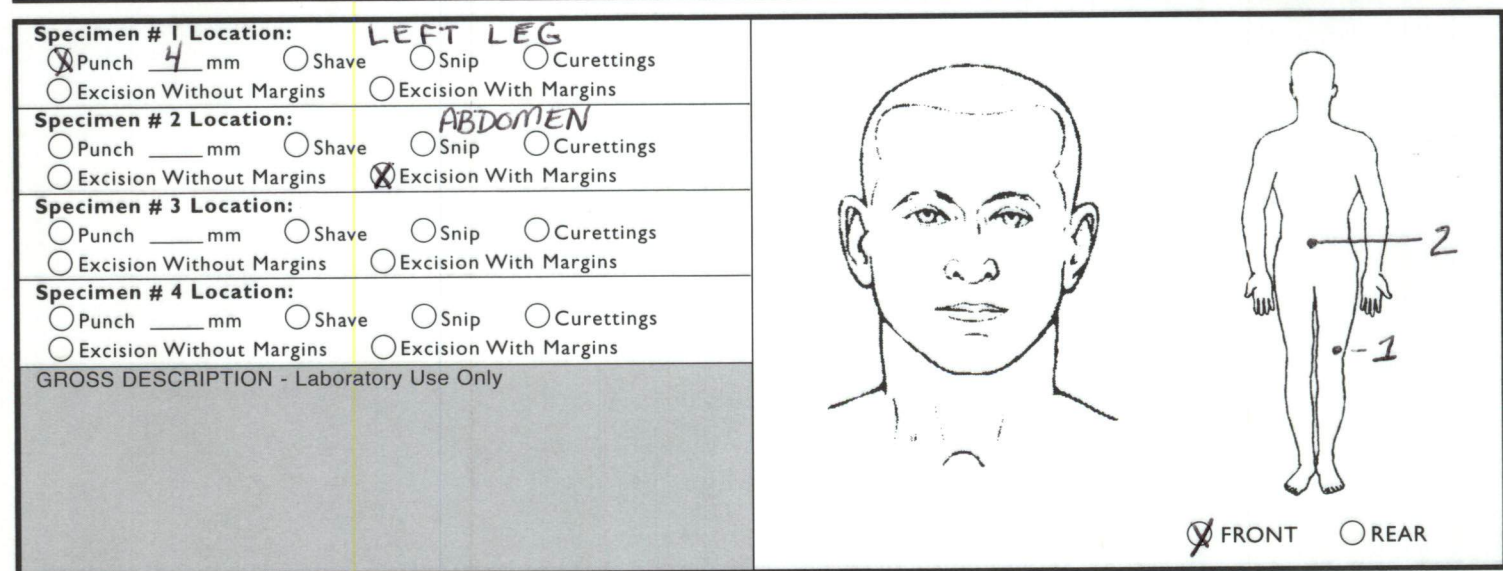 Specimen # 1 Location: LEFT LEG
Punch 4 mm Shave Snip Curettings
Excision Without Margins Excision With Margins
Specimen # 2 Location: ABDOMEN
Punch ____ mm Shave Snip Curettings
Excision Without Margins Excision With Margins
Specimen # 3 Location:
Punch ____ mm Shave Snip Curettings
Excision Without Margins Excision With Margins
Specimen # 4 Location:
Punch ____ mm Shave Snip Curettings
Excision Without Margins Excision With Margins
GROSS DESCRIPTION - Laboratory Use Only
2
1
FRONT REAR